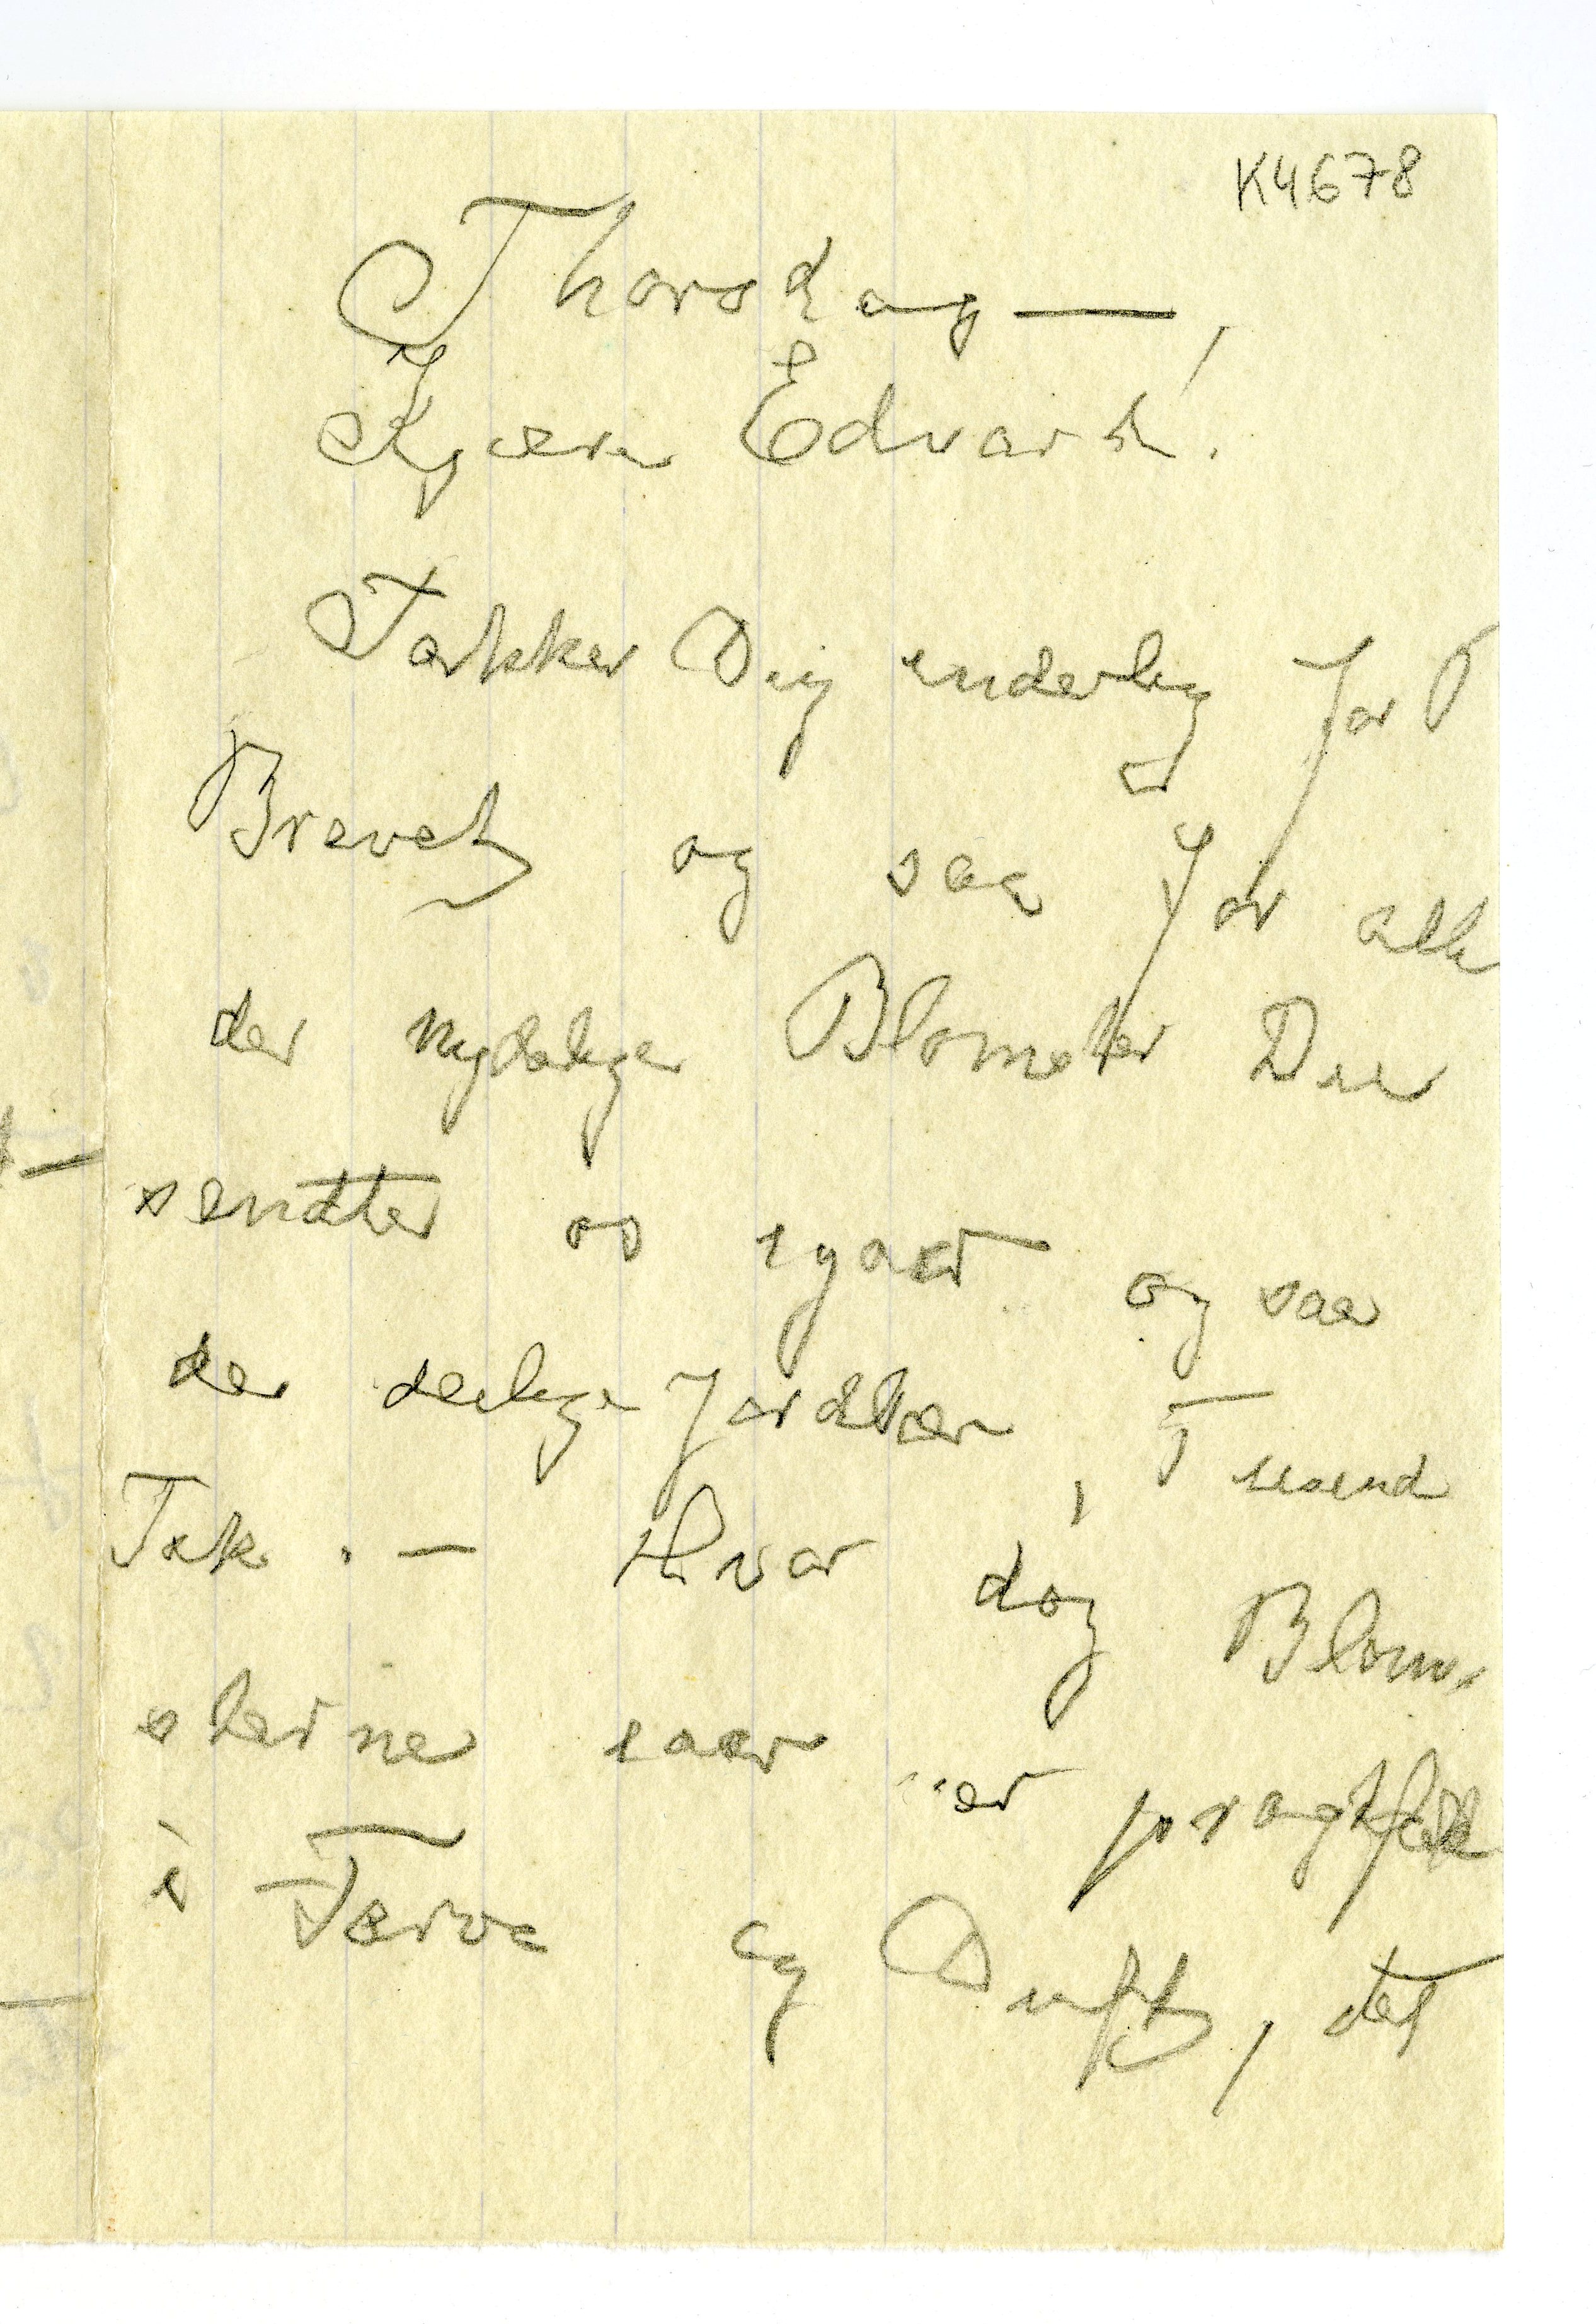 K4678
Thorsdag —
Kjære Edvard!
Takker Dig inderlig for
Brevet og saa for alle
de nydelige Blomster Du
sendte os igaar og saa
de deilige Jordbær, Tusend
Tak. — Hvor dog Blom-
sterne iaar er pragtfulde
i Farve og Duft, det